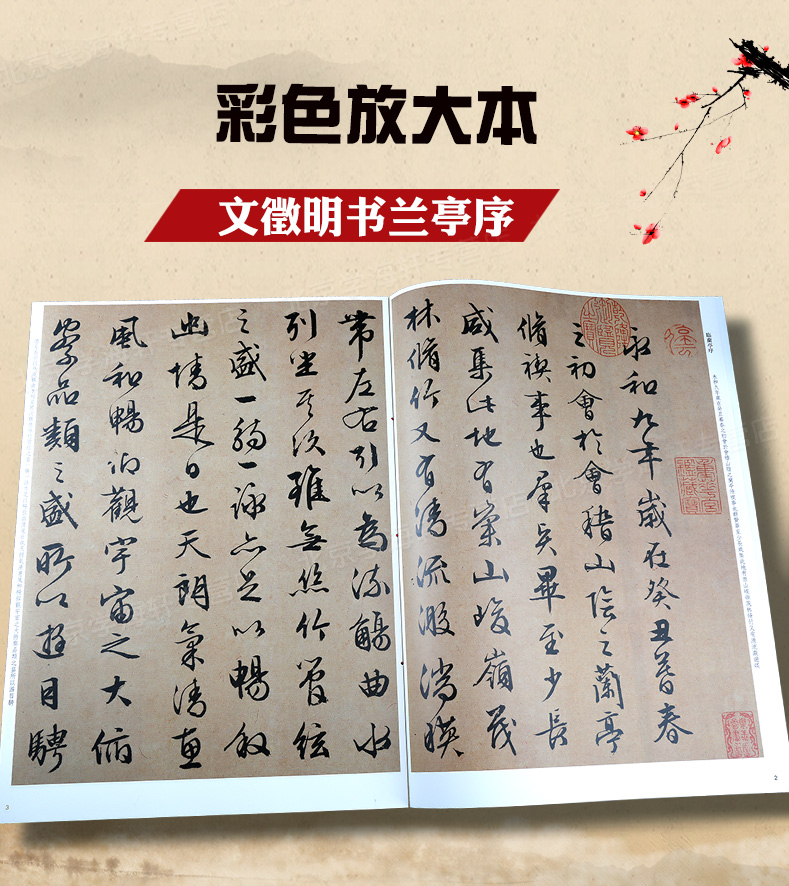 彩色放大本
文徵明书兰亭序
臨蘭亭序
永和九年歲在癸丑暮春
之初會於會稽山陰之蘭亭
脩禊事也羣賢畢至少長
咸集此地有崇山峻嶺茂
林脩竹又有清流激湍暎
帶左右引以為流觴曲水
列坐其次雖無絲竹管絃
之盛一觴一詠亦足以暢叙
幽情是日也天朗氣清惠
風和暢仰觀宇宙之大俯
察品類之盛所以遊目騁
2
3